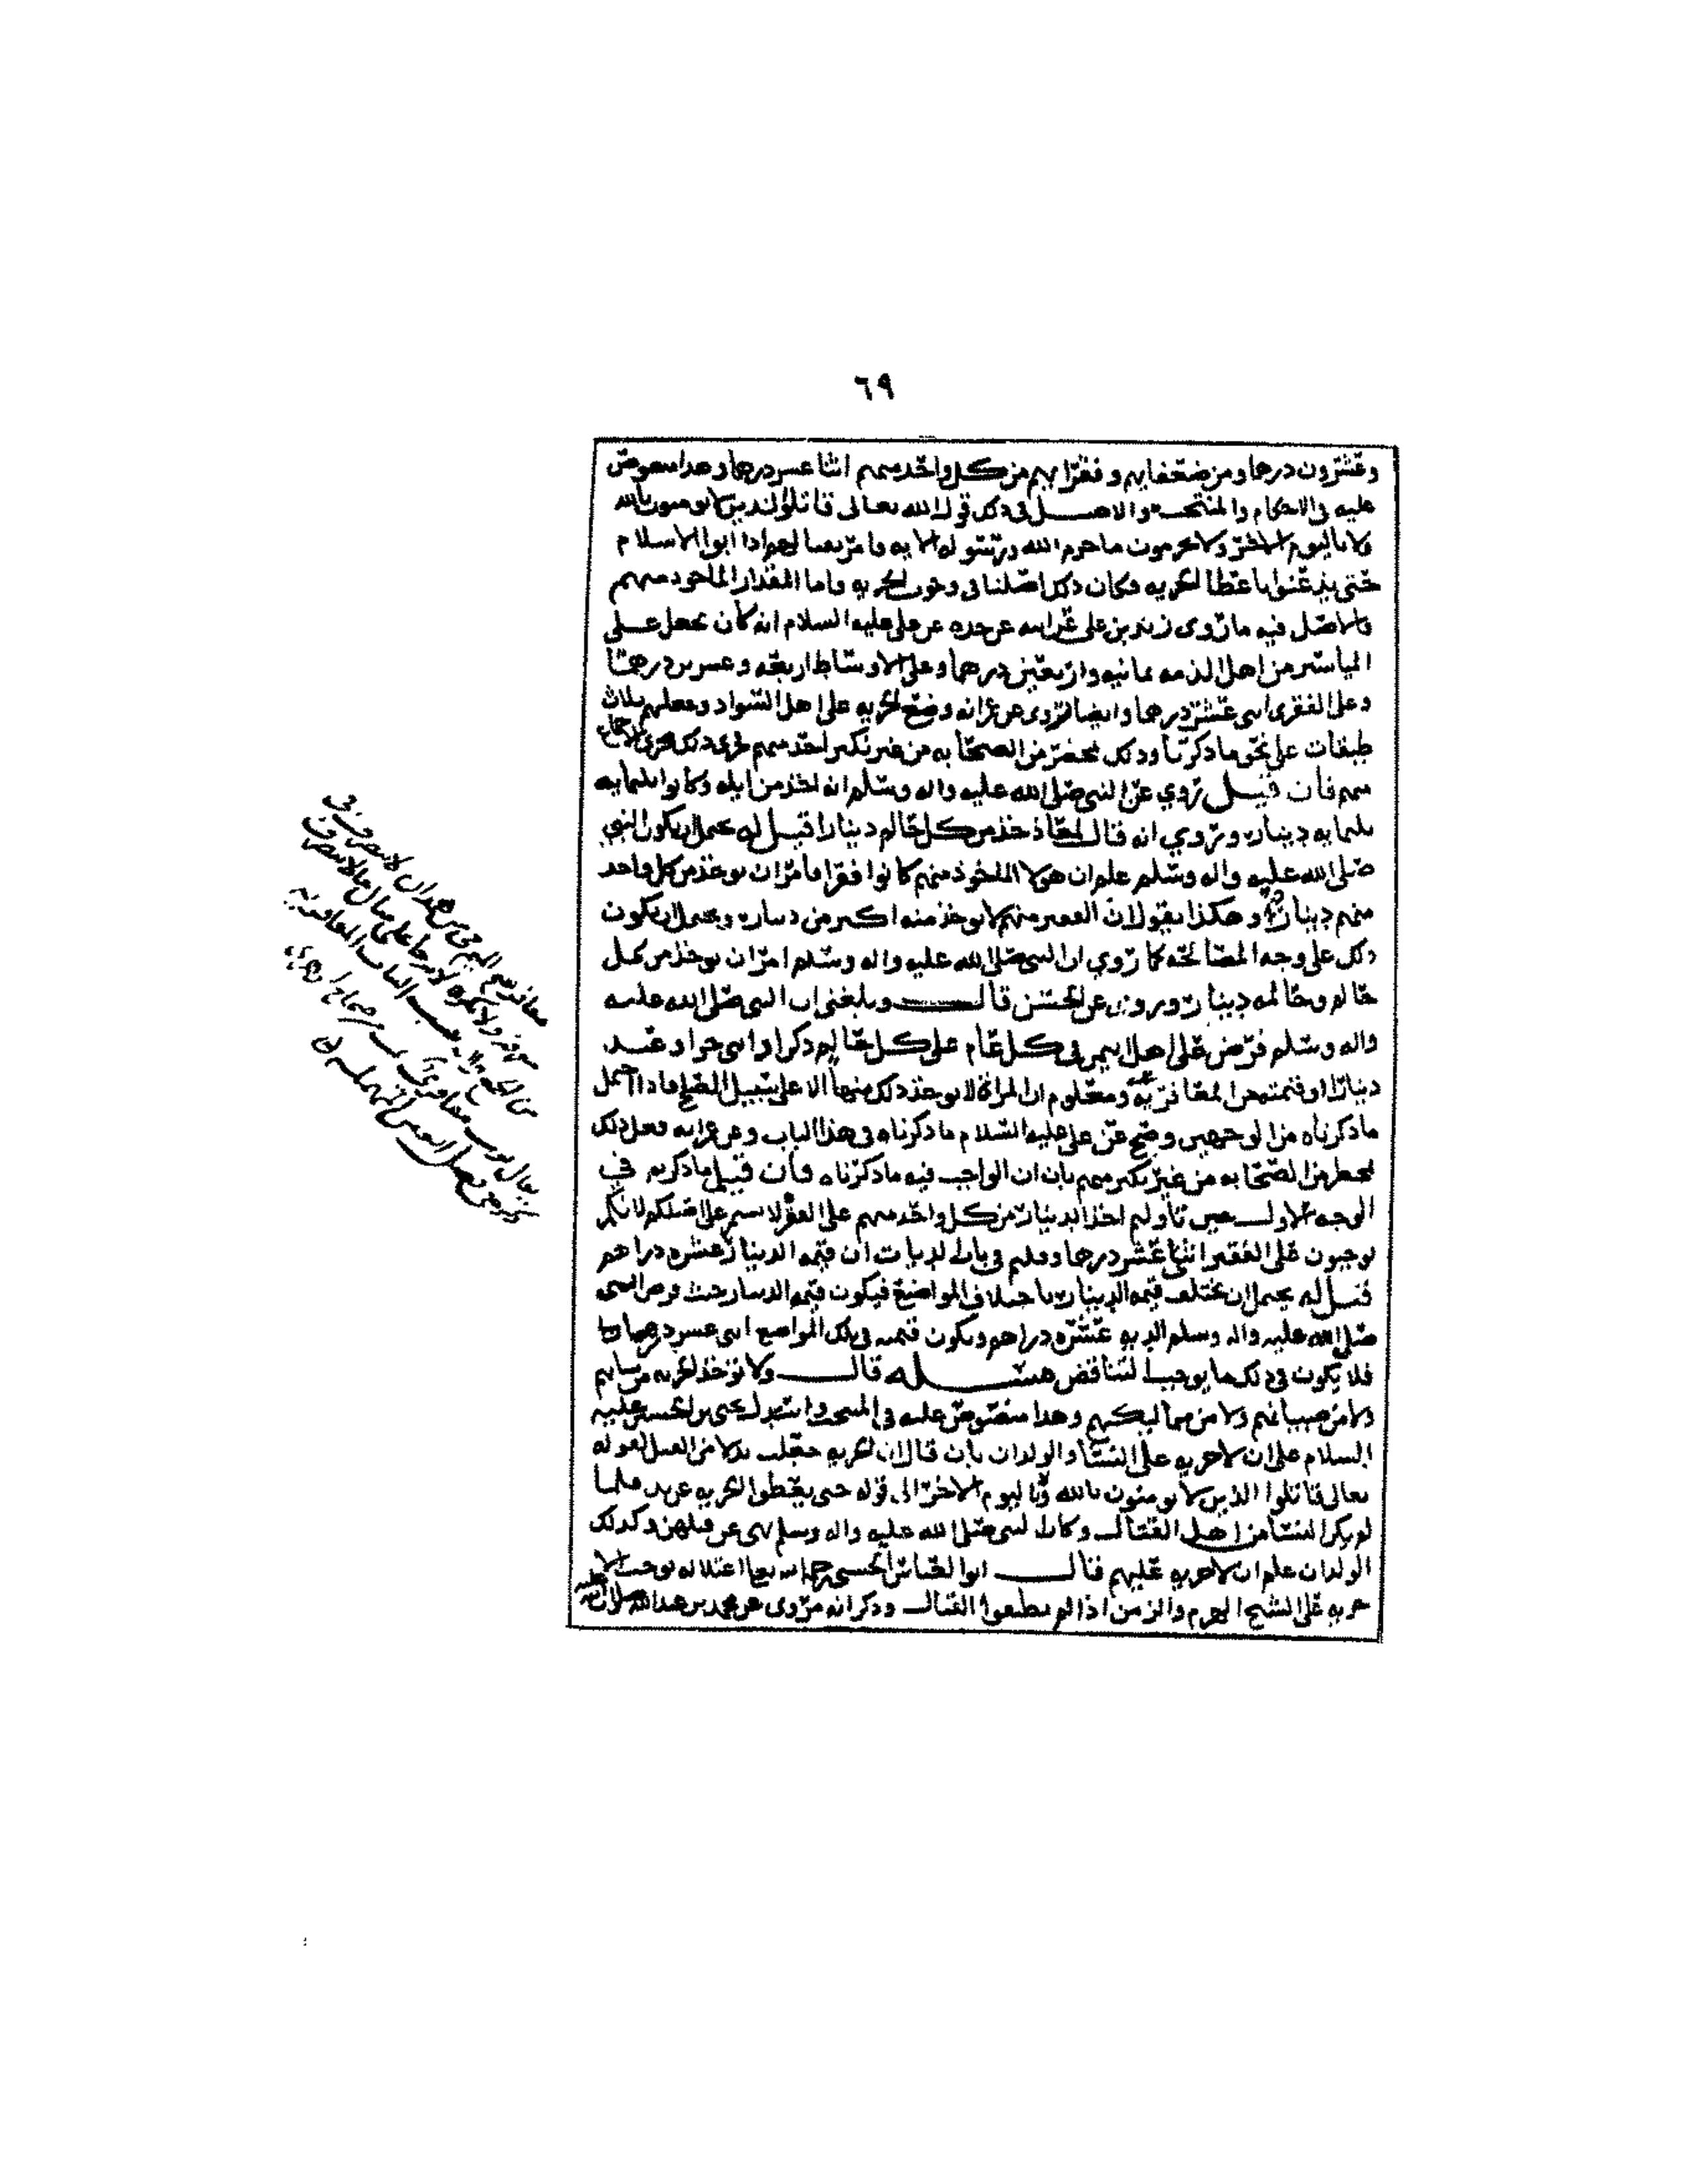 ٦٩
وعشرون درهما ومن ضعفايهم وفقرايهم من كل واحد منهم اثنا عشر درهما وهذا منصوص
عليه في الاحكام والمنتخب والاصل في ذلك قول الله تعالى قاتلوا الذين لا يومنون بالله
ولا باليوم الاخر ولا يحرمون ما حرم الله ورسوله الايه فامر بقتالهم اذا ابوا الاسلام
حتى يذعنوا باعطا الجزيه فكان ذلك اصلنا في وجوب الجزيه واما المقدار الماخوذ منهم
فالاصل فيه ما روى زيد بن علي عن ابيه عن جده عن علي عليه السلام انه كان يجعل على
المياسير من اهل الذمه ثمانيه واربعين درهما وعلى الاوساط اربعه وعشرين درهما
وعلى الفقرى اثنى عشر درهما وايضا روى عن عمر انه وضع الجزيه على اهل السواد وجعلهم ثلاث
طبقات على نحو ما ذكرنا وذلك بمحضر من الصحابه من غير نكير احد منهم فجرى ذلك مجرى الاجماع
منهم فان قيل روي عن النبي صلى الله عليه واله وسلم انه اخذ من ايله وكانوا ثلثمايه
ثلثمايه دينار وروي انه قال لمعاذ خذ من كل حالم دينارا قيل له يحتمل ان يكون النبي
صلى الله عليه واله وسلم علم ان هولا الماخوذ منهم كانوا فقرا فامر ان يوخذ من كل واحد
منهم دينار وهكذا نقول ان الفقير منهم لا يوخذ منه اكثر من دينار ويحتمل ان يكون
ذلك على وجه المصالحه كما روي ان النبي صلى الله عليه واله وسلم امر ان يوخذ من كل
حالم وحالمه دينار وروى عن الحسن قال وبلغني ان النبي صلى الله عليه
واله وسلم فرض على اهل اليمن في كل عام على كل حالم ذكر او انثى حر او عبد
دينارا او قيمته من المعافريه ومعلوم ان المراة لا يوخذ ذلك منها الا على سبيل الصلح فاذا احتمل
ما ذكرناه من الوجهين وصح عن علي عليه السلام ما ذكرناه في هذا الباب وعن عمر انه فعل ذلك
بمحضر من الصحابه من غير نكير منهم بان ان الواجب فيه ما ذكرناه فان قيل ما ذكرتم في
الوجه الاول من تاولكم اخذ الدينار من كل واحد منهم على الفقر لا يستمر على اصلكم لانكم
توجبون على الفقير اثنى عشر درهما وقلتم في باب الديات ان قيمه الدينار عشره دراهم
قيل له يحتمل ان تختلف قيمه الدينار باختلاف المواضع فيكون قيمه الدينار حيث فرض النبي
صلى الله عليه واله وسلم الديه عشره دراهم ويكون قيمته في تلك المواضع اثنى عشر درهما
فلا يكون في ذلك ما يوجب التناقض مسئله قال ولا توخذ الجزيه من نسايهم
ولا من صبيانهم ولا من مماليكهم وهذا منصوص عليه في المنتخب واستدل يحيى بن الحسين عليه
السلام على ان لا جزيه على النسا والولدان بان قال ان الجزيه جعلت بدلا من القتل لقوله
تعالى قاتلوا الذين لا يومنون بالله ولا باليوم الاخر الى قوله حتى يعطوا الجزيه عن يد فلما
لم يكن النسا من اهل القتال وكان النبي صلى الله عليه واله وسلم نهى عن قتلهن وكذلك
الولدان علم ان لا جزيه عليهم قال ابو العباس الحسني رحمه الله تعالى اعتلاله يوجب الا
جزيه على الشيخ الهرم والزمن اذا لم يطيعوا القتال وذكر انه مروى عن محمد بن عبدالله صلوات الله عليه
معافر بفتح الميم حي من همدان لا ينصرف في
معرفه ولا نكره لانه جا على مثال ما لا ينصرف
من الجمع واليه تنسب الثياب المعافريه
يقال ثوب معافري